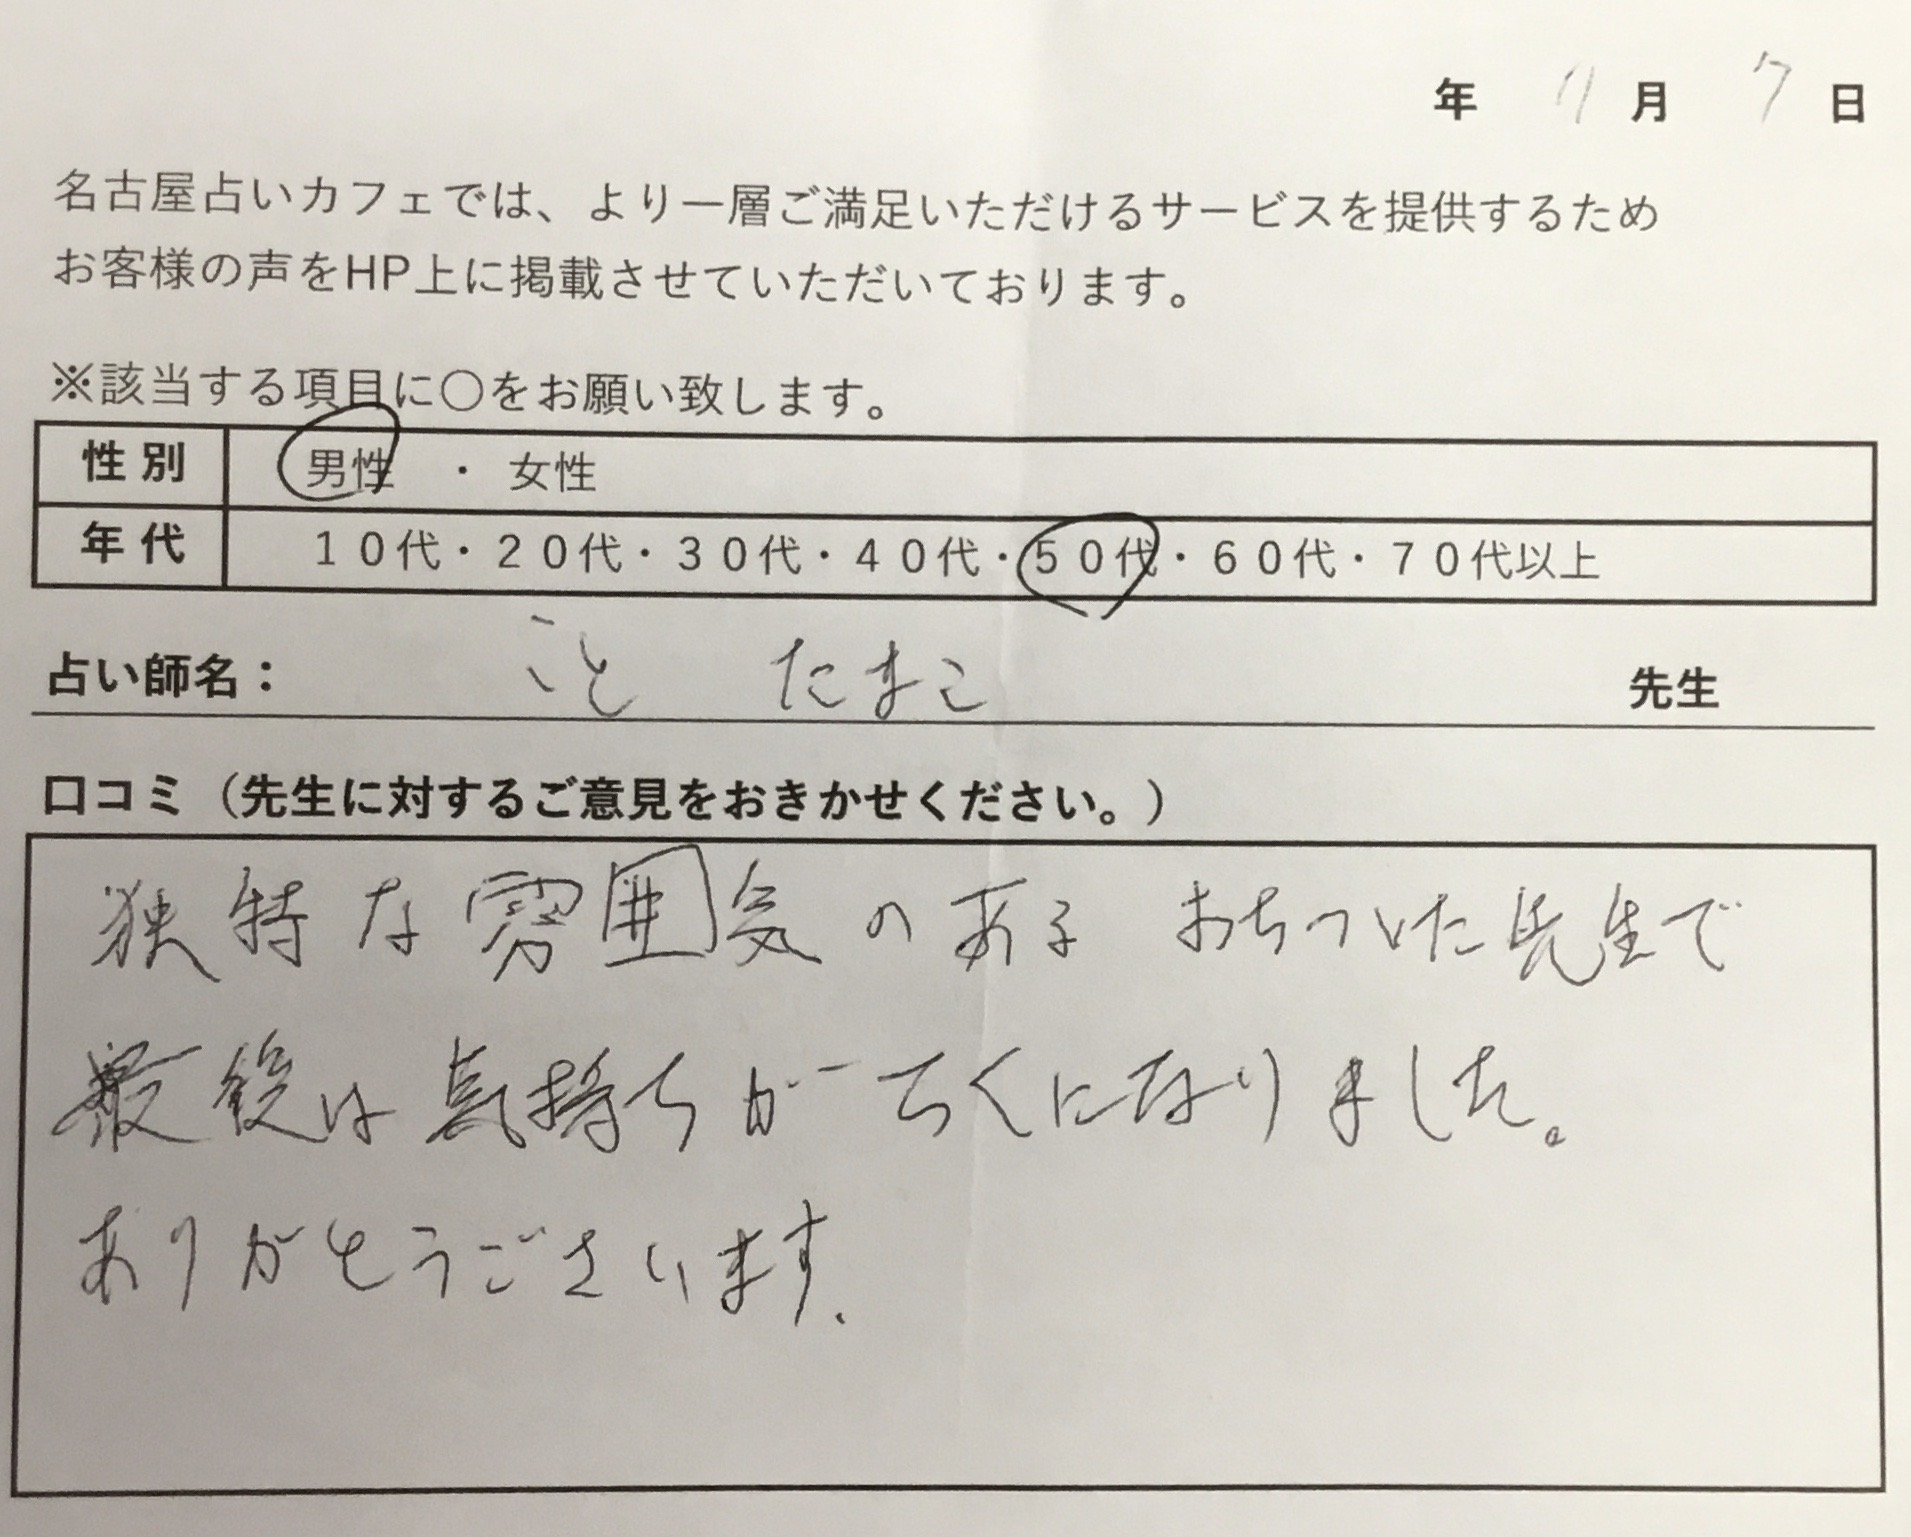 年 7 月 7 日
名古屋占いカフェでは、より一層ご満足いただけるサービスを提供するため
お客様の声をHP上に掲載させていただいております。
※該当する項目に〇をお願い致します。
性別 男性 ・ 女性
年代 10代・20代・30代・40代・50代・60代・70代以上
占い師名： こと たまこ 先生
口コミ（先生に対するご意見をおきかせください。）
独特な雰囲気のある おちついた先生で
最後は気持ちがらくになりました。
ありがとうございます.